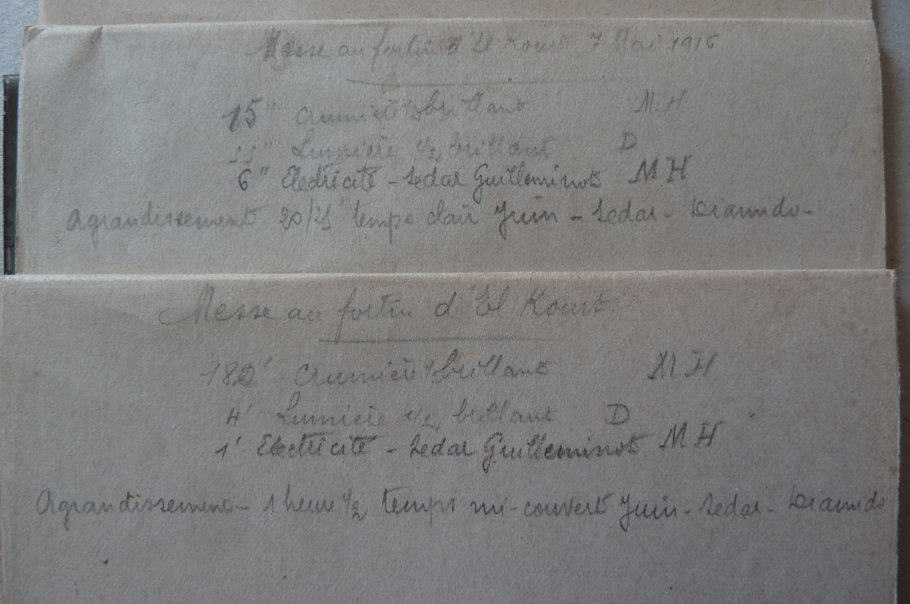 Messe au fortin d'El Kount 7 Mai 1916
15" Lumière ½ brillant M H
11" Lumière ½ brillant D
6" Electricité - Sedar Guilleminot M H
Agrandissement temps clair Juin - Sedar -
Messe au fortin d'El Kount
180' Lumière ½ brillant M H
4' Lumière ½ brillant D
1' Electricité - Sedar Guilleminot M H
Agrandissement - 1 heure ½ temps mi-couvert Juin - Sedar -